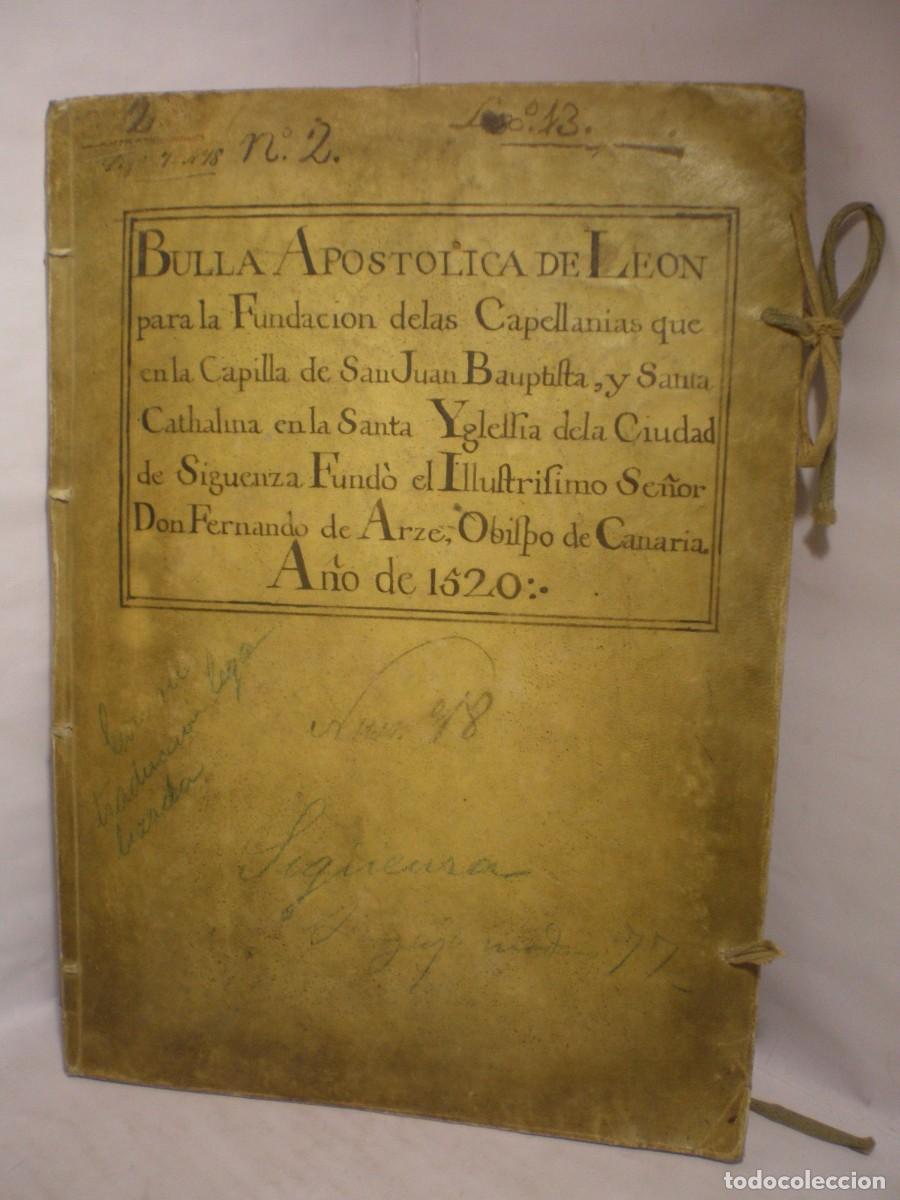 2
nº. 2.
Legº. 13.
BULLA APOSTOLICA DE LEON
para la Fundacion delas Capellanias que
en la Capilla de San Juan Bauptista, y Santa
Cathalina en la Santa Yglessia dela Ciudad
de Siguenza Fundò el Illustrisimo Señor
Don Fernando de Arze, Obispo de Canaria.
Año de 1520:.
traducción lega
lizada
Sigüenza
77
todocoleccion